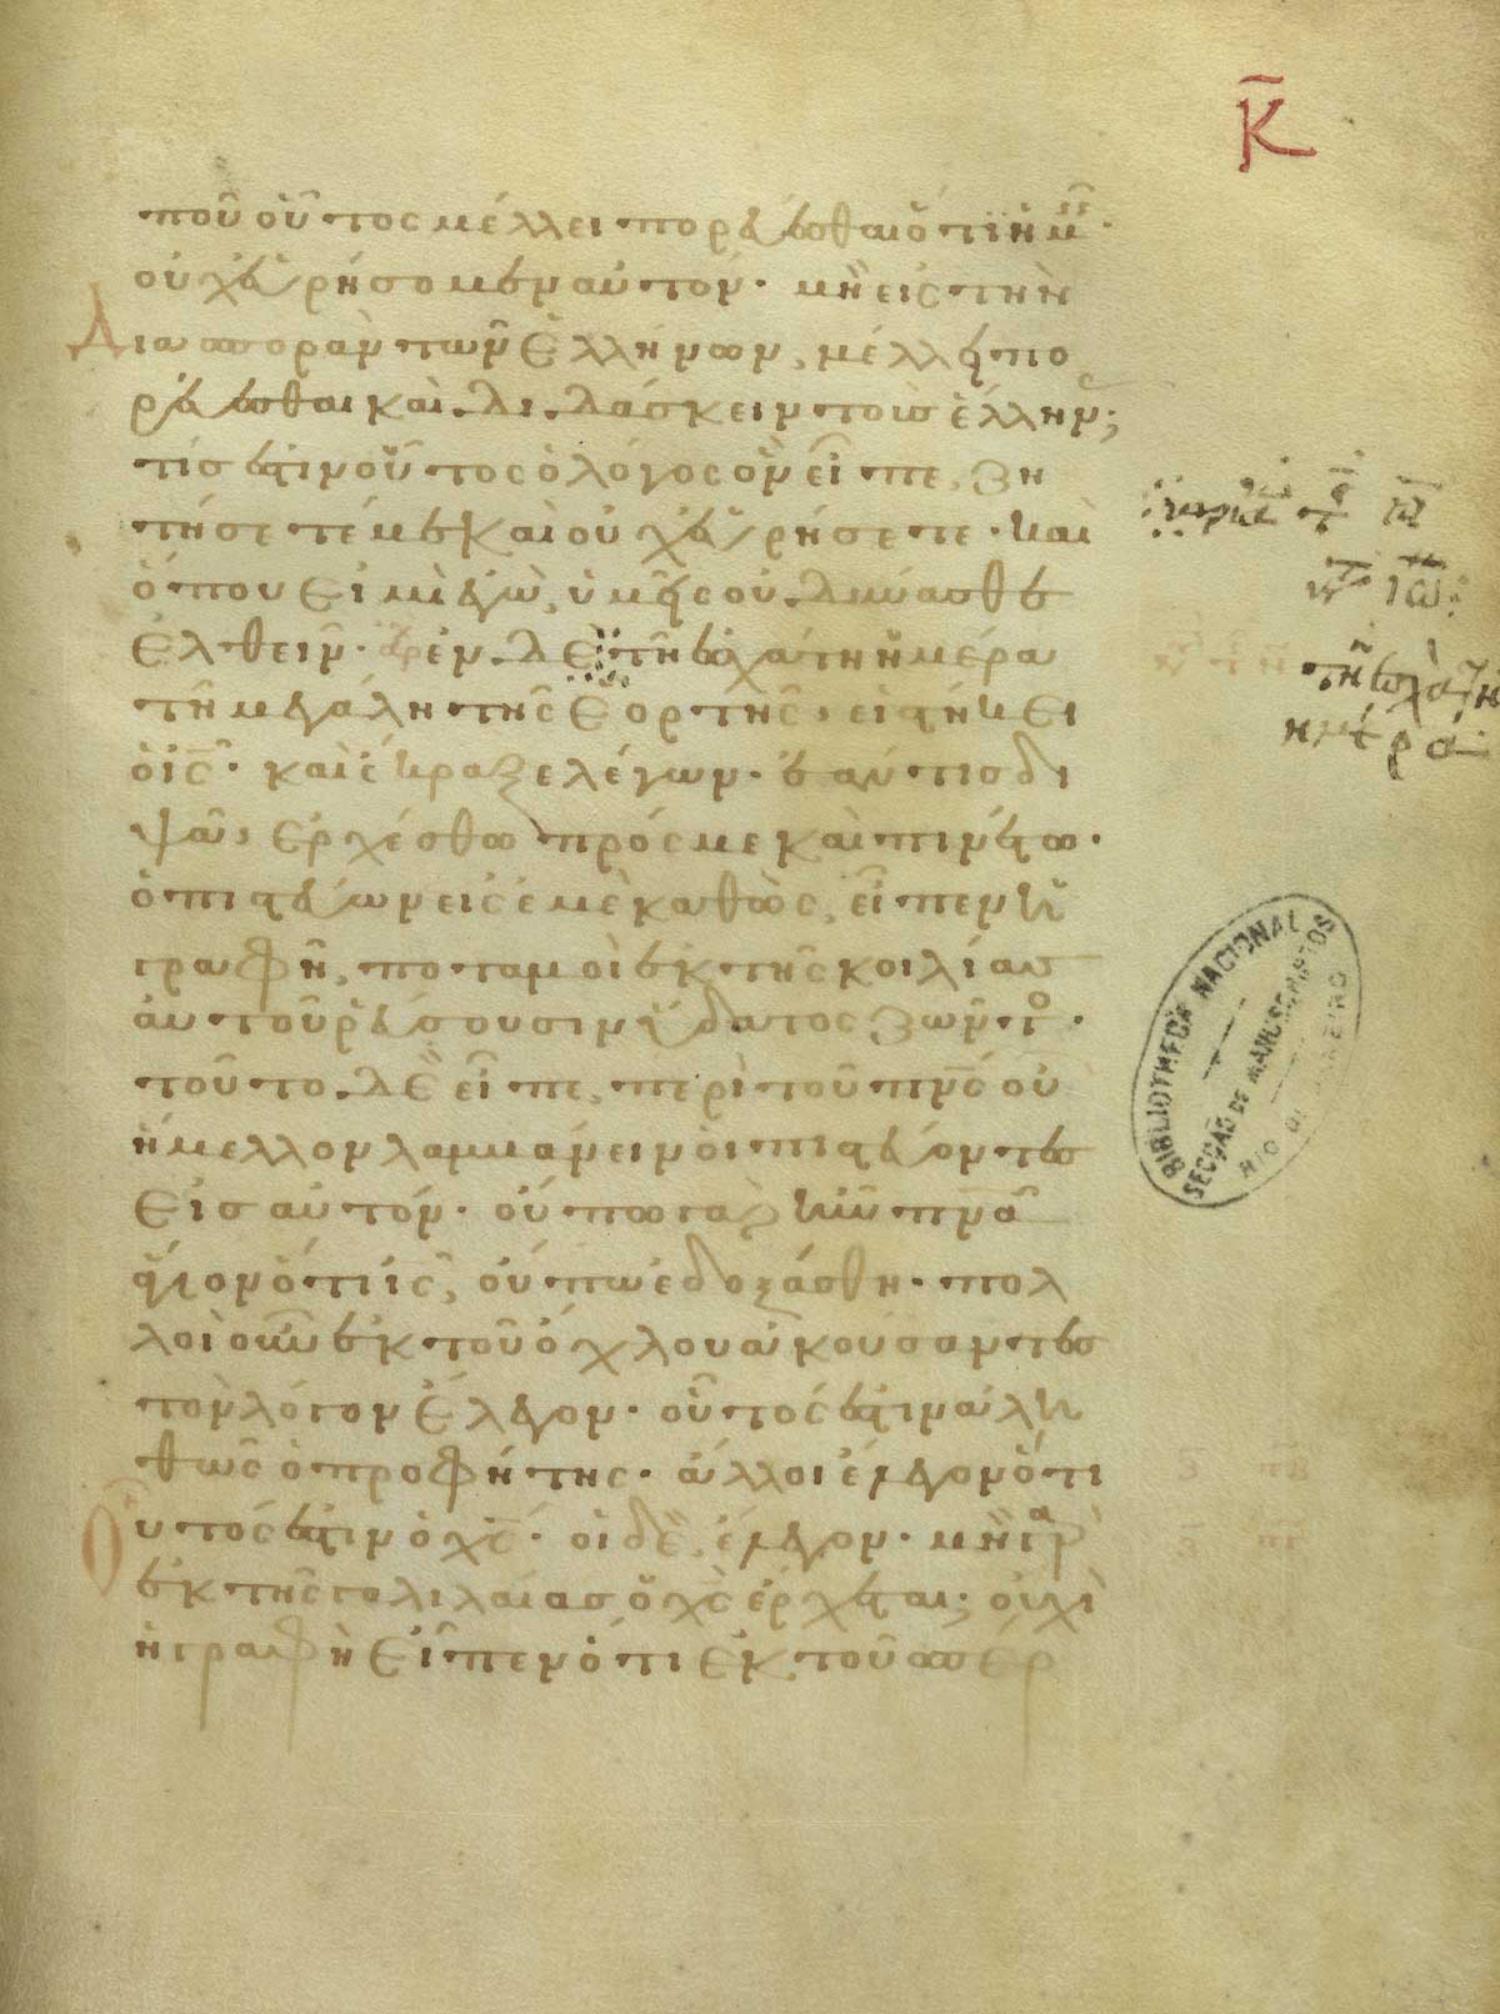 Κ̄
ποῦ οὗτος μέλλει πορεύεσθαι ὅτι ἡμεῖς·
οὐχ εὑρήσομεν αὐτόν· μὴ εἰς τὴν
Διασπορὰν των Ἑλλήνων, μέλλει πο
ρεύεσθαι καὶ διδάσκειν τοὺσ ἕλλην;
τίσ ἐστιν οὗτος ὁ λόγος ὃν εἶπε, ζη
τήσετέ με καὶ οὐχ εὑρήσετε· καὶ
ὅπου εἰμὶ ἐγὼ, ὑμεῖς οὐ δύνασθε
ἐλθεῖν· ἐν δὲ τῆ ἐσχάτη ἡμέρα
τῆ μεγάλη τῆς ἑορτῆς, εἱστήκει
ὁ ις̄· καὶ ἔκραξε λέγων· ἐάν τισ δι
ψᾶ, ἐρχέσθω πρός με καὶ πινέτω·
ὁ πιστεύων εἰς ἐμὲ καθὼς, εἶπεν ἡ
γραφῆ, ποταμοὶ ἐκ τῆς κοιλίασ
ἀυτοῦ ῥεύσουσιν ὕδατος ζῶντο·
τοῦτο δὲ εἶπε, περὶ τοῦ πν̄ς οὗ
ἤμελλον λαμβάνειν ὁι πιστεύοντεσ
εἰσ αὐτόν· οὔπω γὰρ ἦν πν̄α
ἅγιον ὅτι ις̄, οὔπω ἐδοξάσθη· πολ
λοὶ οὖν ἐκ τοῦ ὄχλου ἀκούσαντεσ
τὸν λόγον ἔλεγον· οὗτός ἐστιν ἀλη
θῶς ὁ προφήτης· ἄλλοι ἔλεγον ὅτι
Οὗτός ἐστιν ὁ χς̄· οἱ δὲ ἔλεγον· μὴ γὰρ
ἐκ τῆς γαλιλαίασ ὁ χς̄ ἔρχεται; οὐχὶ
ἡ γραφὴ εἶπεν ὅτι ἐκ τοῦ σπέρ
τῆ ἐσχάτη
ἡμέρα
BIBLIOTHECA NACIONAL
SECÇÃO DE MANUSCRIPTOS
RIO DE JANEIRO